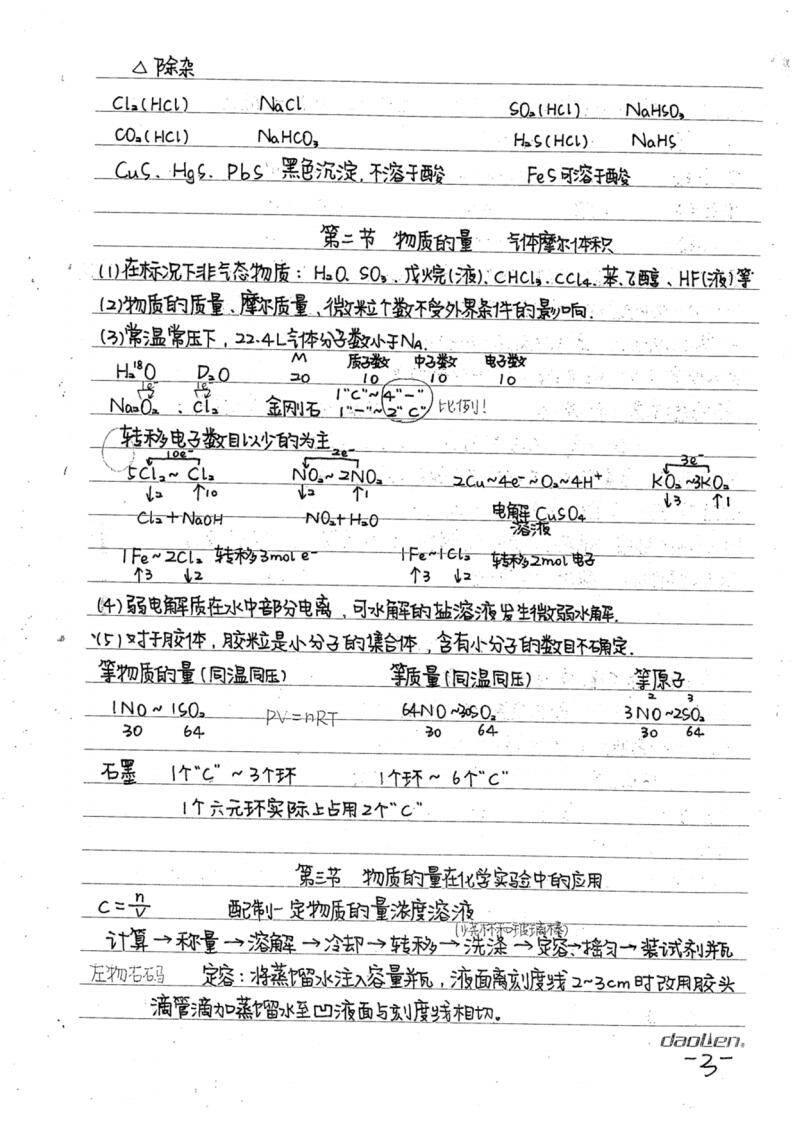 △ 除杂
Cl₂(HCl) NaCl SO₂(HCl) NaHSO₃
CO₂(HCl) NaHCO₃ H₂S(HCl) NaHS
CuS、HgS、PbS 黑色沉淀,不溶于酸 FeS可溶于酸
第二节 物质的量 气体摩尔体积
(1)在标况下非气态物质:H₂O、SO₃、戊烷(液)、CHCl₃、CCl₄、苯、乙醇、HF(液)等
(2)物质的质量、摩尔质量、微粒个数不受外界条件的影响.
(3)常温常压下,22.4L气体分子数小于NA.
M 质子数 中子数 电子数
H₂¹⁸O D₂O 20 10 10 10
1e⁻ 1e⁻ 1"C"~4"-"
Na₂O₂、Cl₂ 金刚石 1"-"~2"C" 比例!
转移电子数目以少的为主
10e⁻ 2e⁻ 3e⁻
5Cl₂~Cl₂ NO₂~2NO₂ 2Cu~4e⁻~O₂~4H⁺ KO₂~3KO₂
↓2 ↑10 ↓2 ↑1 ↓3 ↑1
Cl₂+NaOH NO₂+H₂O 电解CuSO₄
溶液
1Fe~2Cl₂ 转移3mol e⁻ 1Fe~1Cl₂ 转移2mol电子
↑3 ↓2 ↑3 ↓2
(4)弱电解质在水中部分电离,可水解的盐溶液发生微弱水解.
(5)对于胶体,胶粒是小分子的集合体,含有小分子的数目不确定.
等物质的量(同温同压) 等质量(同温同压) 等原子
2 3
1NO~1SO₂ PV=nRT 64NO~30SO₂ 3NO~2SO₂
30 64 30 64 30 64
石墨 1个"C"~3个环 1个环~6个"C"
1个六元环实际上占用2个"C"
第三节 物质的量在化学实验中的应用
C=n/V 配制一定物质的量浓度溶液
(烧杯和玻璃棒)
计算→称量→溶解→冷却→转移→洗涤→定容→摇匀→装试剂瓶
左物右码 定容:将蒸馏水注入容量瓶,液面离刻度线2~3cm时改用胶头
滴管滴加蒸馏水至凹液面与刻度线相切。
daolien®
-3-